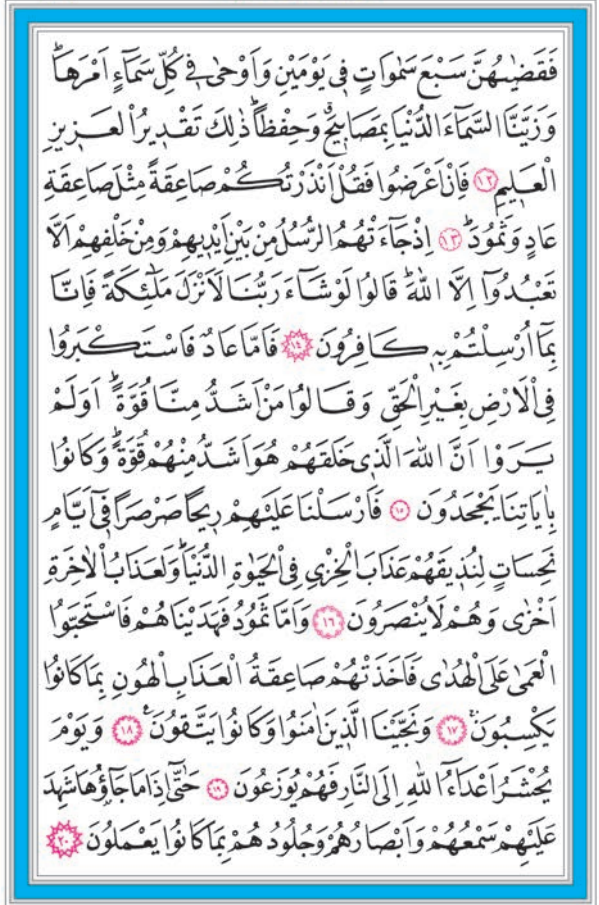 فَقَضٰيهُنَّ سَبْعَ سَمٰوَاتٍ فٖي يَوْمَيْنِ وَاَوْحٰى فٖي كُلِّ سَمَٓاءٍ اَمْرَهَاۜ
وَزَيَّنَّا السَّمَٓاءَ الدُّنْيَا بِمَصَابٖيحَۗ وَحِفْظاًۜ ذٰلِكَ تَقْدٖيرُ الْعَزٖيزِ
الْعَلٖيمِ ﴿١٢﴾ فَاِنْ اَعْرَضُوا فَقُلْ اَنْذَرْتُكُمْ صَاعِقَةً مِثْلَ صَاعِقَةِ
عَادٍ وَثَمُودَۜ ﴿١٣﴾ اِذْ جَٓاءَتْهُمُ الرُّسُلُ مِنْ بَيْنِ اَيْدٖيهِمْ وَمِنْ خَلْفِهِمْ اَلَّا
تَعْبُدُٓوا اِلَّا اللّٰهَۜ قَالُوا لَوْ شَٓاءَ رَبُّنَا لَاَنْزَلَ مَلٰٓئِكَةً فَاِنَّا
بِمَٓا اُرْسِلْتُمْ بِهٖ كَافِرُونَ ﴿١٤﴾ فَاَمَّا عَادٌ فَاسْتَكْبَرُوا
فِي الْاَرْضِ بِغَيْرِ الْحَقِّ وَقَالُوا مَنْ اَشَدُّ مِنَّا قُوَّةًۜ اَوَلَمْ
يَرَوْا اَنَّ اللّٰهَ الَّذٖي خَلَقَهُمْ هُوَ اَشَدُّ مِنْهُمْ قُوَّةًۜ وَكَانُوا
بِاٰيَاتِنَا يَجْحَدُونَ ﴿١٥﴾ فَاَرْسَلْنَا عَلَيْهِمْ رٖيحاً صَرْصَراً فٖٓي اَيَّامٍ
نَحِسَاتٍ لِنُذٖيقَهُمْ عَذَابَ الْخِزْيِ فِي الْحَيٰوةِ الدُّنْيَاۜ وَلَعَذَابُ الْاٰخِرَةِ
اَخْزٰى وَهُمْ لَا يُنْصَرُونَ ﴿١٦﴾ وَاَمَّا ثَمُودُ فَهَدَيْنَاهُمْ فَاسْتَحَبُّوا
الْعَمٰى عَلَى الْهُدٰى فَاَخَذَتْهُمْ صَاعِقَةُ الْعَذَابِ الْهُونِ بِمَا كَانُوا
يَكْسِبُونَۚ ﴿١٧﴾ وَنَجَّيْنَا الَّذٖينَ اٰمَنُوا وَكَانُوا يَتَّقُونَ۟ ﴿١٨﴾ وَيَوْمَ
يُحْشَرُ اَعْدَٓاءُ اللّٰهِ اِلَى النَّارِ فَهُمْ يُوزَعُونَ ﴿١٩﴾ حَتّٰٓى اِذَا مَا جَٓاؤُ۫هَا شَهِدَ
عَلَيْهِمْ سَمْعُهُمْ وَاَبْصَارُهُمْ وَجُلُودُهُمْ بِمَا كَانُوا يَعْمَلُونَ ﴿٢٠﴾